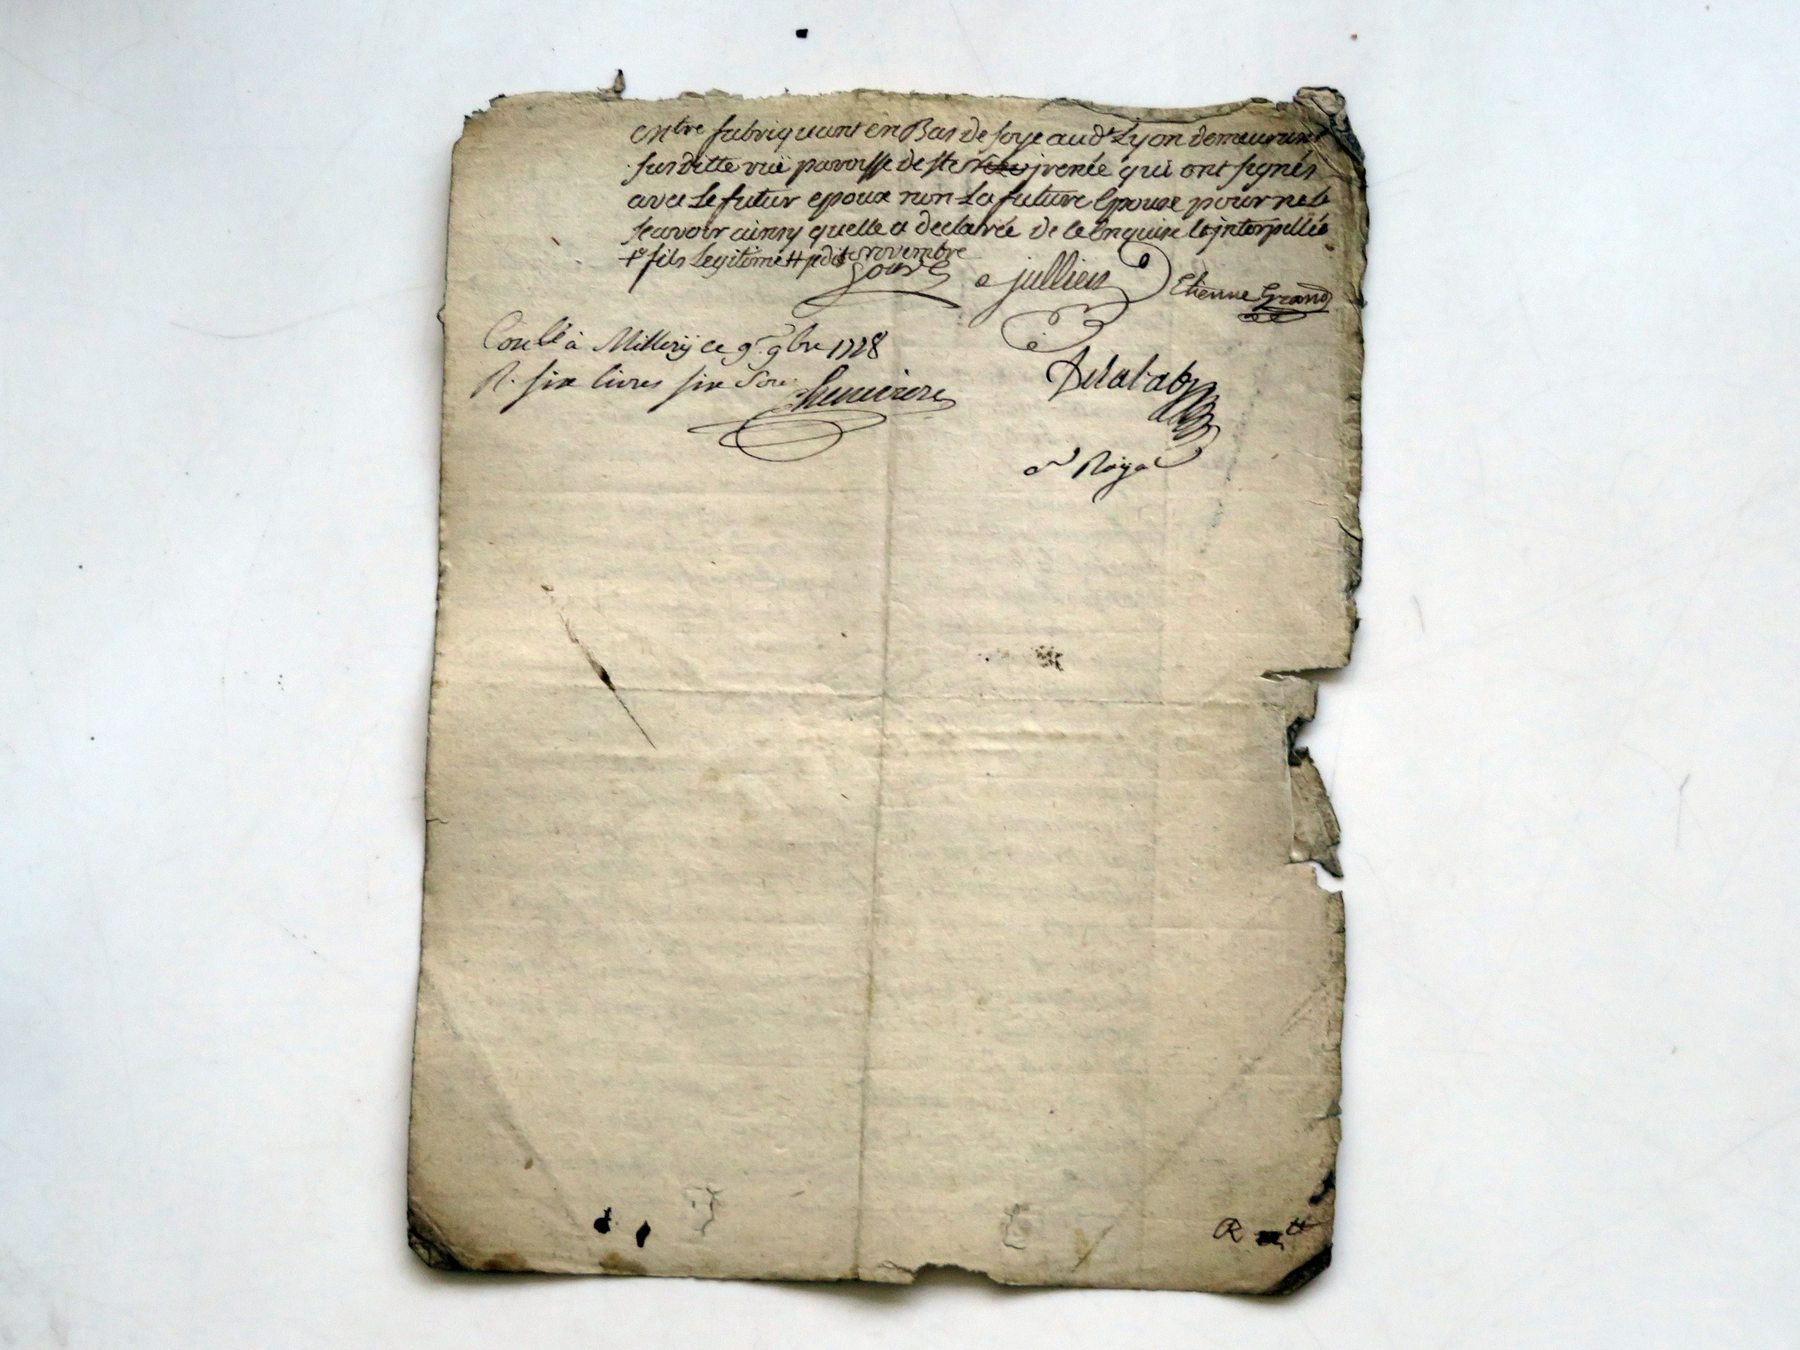 m.tre fabriquant en Bas de soye aud.t Lyon demeurant
susditte ruë paroisse de st jrenée qui ont signés
avec Le futur epoux non La future Epouse pour ne le
scavoir ainsy quelle a declarée de ce Enquise & jnterpellée
+ fils Legitime # jedit novembre
jullien
Etienne Grand
Con.lé à Millery ce 9.e 9bre 1728
R. six livres six sous
Delalab
Roya
R